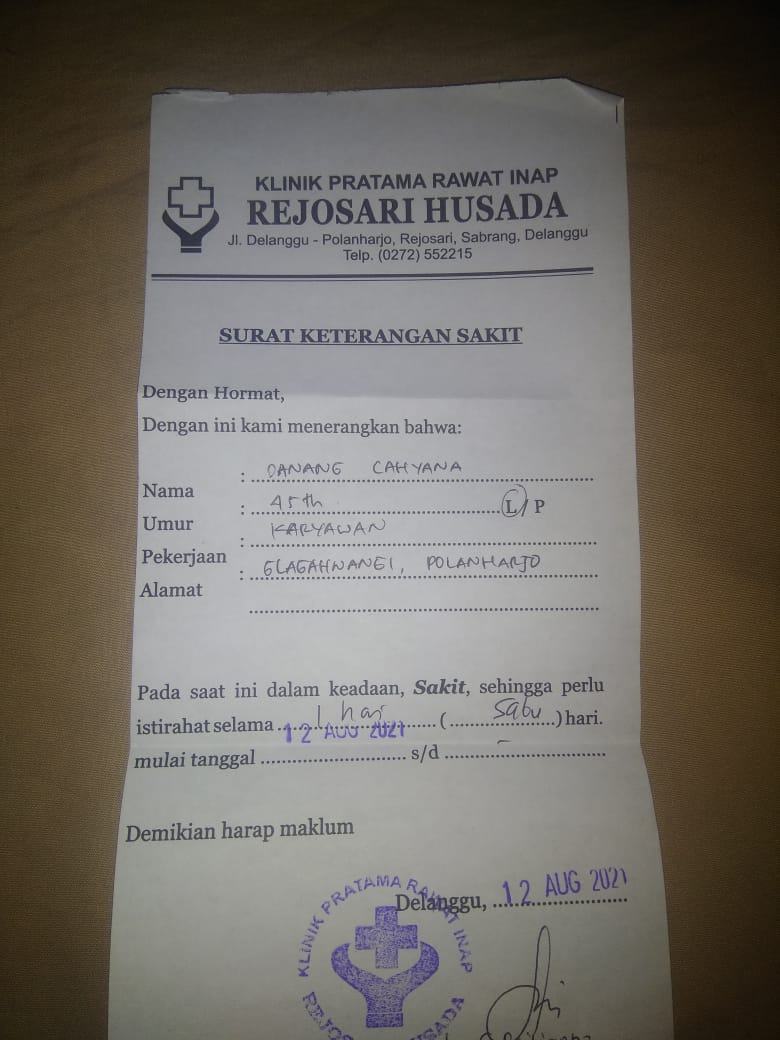 KLINIK PRATAMA RAWAT INAP
REJOSARI HUSADA
Jl. Delanggu - Polanharjo, Rejosari, Sabrang, Delanggu
Telp. (0272) 552215
SURAT KETERANGAN SAKIT
Dengan Hormat,
Dengan ini kami menerangkan bahwa:
Nama : DANANG CAHYANA
Umur : 45th L / P
Pekerjaan : KARYAWAN
Alamat : GLAGAHWANGI, POLANHARJO
Pada saat ini dalam keadaan, Sakit, sehingga perlu
istirahat selama 1 hari ( satu ) hari.
mulai tanggal 12 AUG 2021 s/d -
Demikian harap maklum
Delanggu, 12 AUG 2021
KLINIK PRATAMA RAWAT INAP
REJOSARI HUSADA